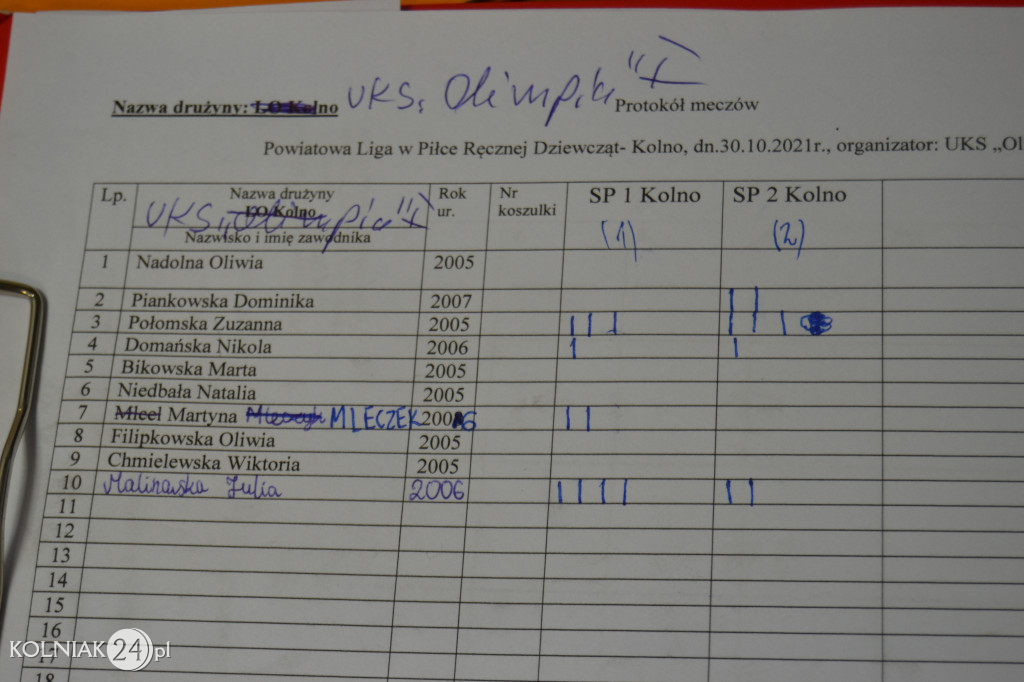 Nazwa drużyny: LO Kolno UKS „Olimpik" I Protokół meczów
Powiatowa Liga w Piłce Ręcznej Dziewcząt- Kolno, dn.30.10.2021r., organizator: UKS „Ol
Lp. Nazwa drużyny Rok ur. Nr koszulki SP 1 Kolno SP 2 Kolno
LO Kolno
UKS „Olimpia" I (1) (2)
Nazwisko i imię zawodnika
1 Nadolna Oliwia 2005
2 Piankowska Dominika 2007 | |
3 Połomska Zuzanna 2005 | | | | | |
4 Domańska Nikola 2006 | |
5 Bikowska Marta 2005
6 Niedbała Natalia 2005
7 Mlcel Martyna MLECZEK 2006 | |
8 Filipkowska Oliwia 2005
9 Chmielewska Wiktoria 2005
10 Malinowska Julia 2006 | | | | | |
11
12
13
14
15
16
17
18
KOLNIAK 24.pl